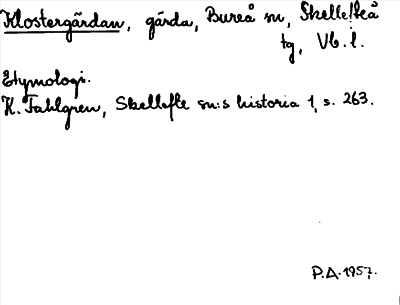 Klostergårdan, gärda, Bureå sn, Skellefteå
tg, Vb. l.
Etymologi.
K. Fahlgren, Skellefte sn:s historia 1, s. 263.
P.A. 1957.